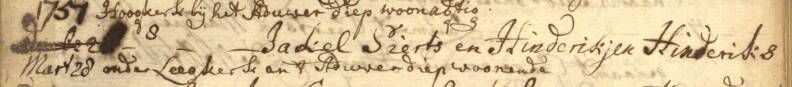 1757 Hoogkerk bij het Aduwer diep woonagtig
8 — — Jackel Sierts en Hinderikjen Hinderiks
Mart 28 onder Leegkerk an't Aduwerdiep woonende